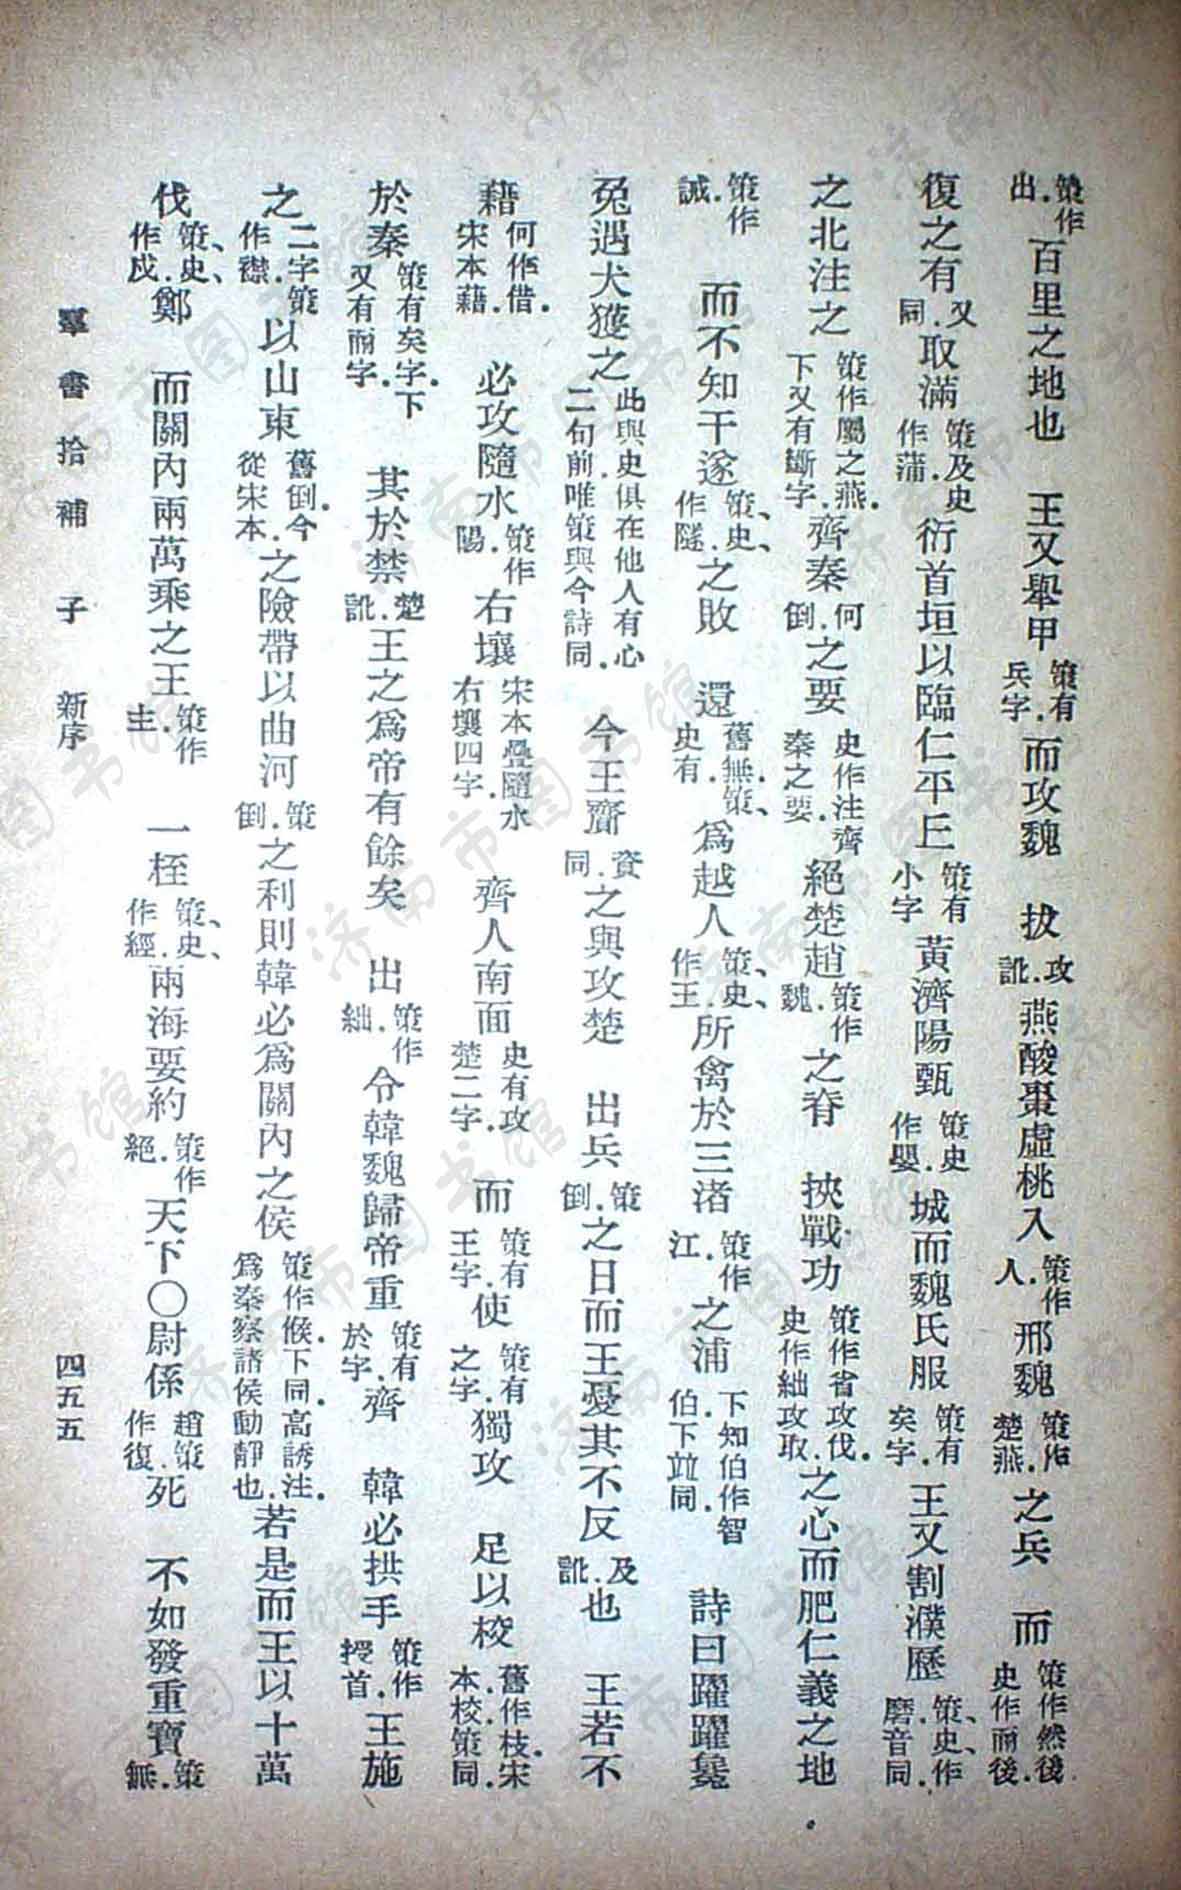 策作出．百里之地也　王又舉甲策有兵字．而攻魏　拔攻訛．燕酸棗虛桃入策作人．邢魏策作楚燕．之兵　而策作然後．史作而後．
復之有又同．取滿策及史作蒲．衍首垣以臨仁平𠀆策有小字黃濟陽甄策史作嬰．城而魏氏服策有矣字．王又割濮歷策、史、作磨．音同．
之北注之策作屬之燕．下又有斷字．齊秦何倒．之要史作注齊秦之要．絕楚趙策作魏．之脊　挾戰功策作省攻伐．史作絀攻取．之心而肥仁義之地
策作誡．　而不知干遂策、史、作隧．之敗　還舊無．策、史有．為越人策、史、作王．所禽於三渚策作江．之浦下知伯作智伯．下竝同．　詩曰躍躍毚
兔遇犬獲之此與史俱在他人有心二句前．唯策與今詩同．　今王齎資同．之與攻楚　出兵策倒．之日而王憂其不反及訛．也　王若不
藉何作借．宋本藉．　必攻隨水策作陽．右壤宋本疊隨水右壤四字．　齊人南面史有攻楚二字．　而策有王字．使策有之字．獨攻　足以校舊作枝．宋本校．策同．
於秦策有矣字．下又有而字．　其於禁楚訛．王之為帝有餘矣　出策作絀．令韓魏歸帝重策有於字．齊　韓必拱手策作授首．王施
之二字策作襟．以山東舊倒．今從宋本．之險帶以曲河策倒．之利則韓必為關內之侯策作候．下同．高誘注．為秦察諸侯動靜也．若是而王以十萬
伐策、史、作戍．鄭　而關內兩萬乘之王策作主．　一桎策、史、作經．兩海要約策作絕．天下〇尉係趙策作復．死　不如發重寶策無．
羣書拾補　子　新序　四五五